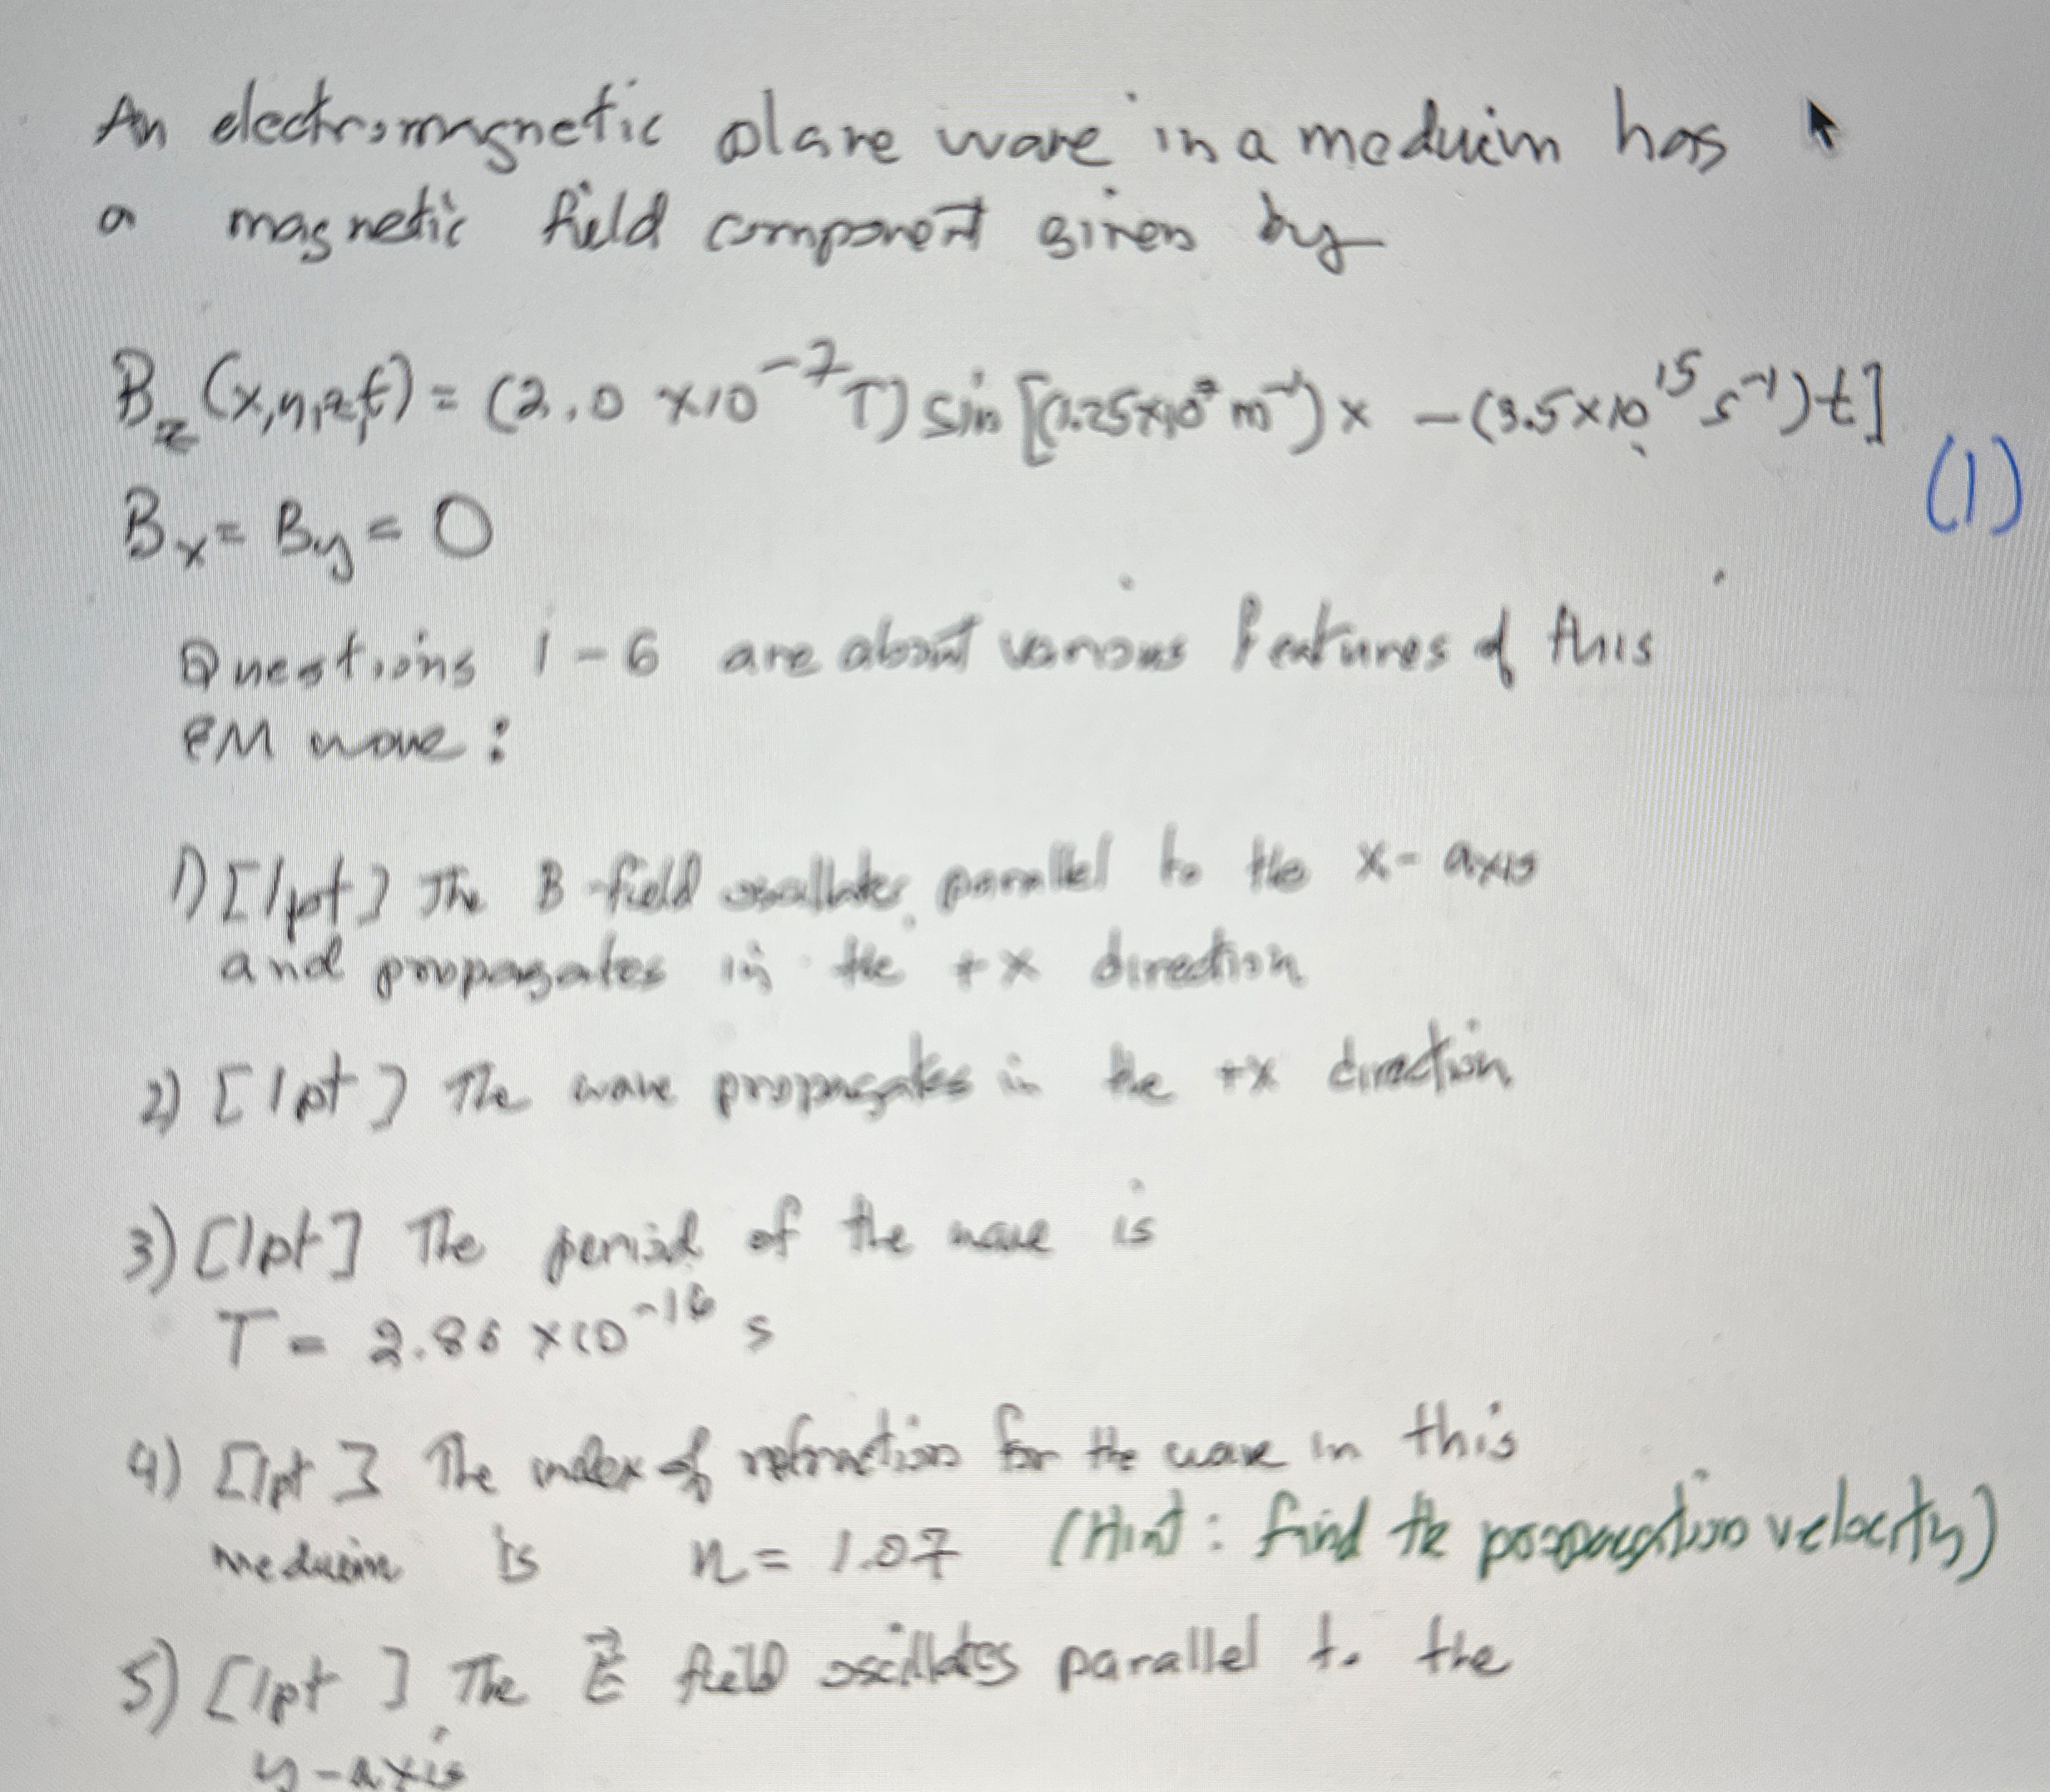 An electromagnetic plane wave in a meduim has
a magnetic field component given by
B_z (x,y,z,t) = (2.0 ×10^-7 T) sin [(1.25×10^7 m^-1) x - (3.5×10^15 s^-1) t]
(1)
Bx = By = 0
Questions 1-6 are about various features of this
EM wave :
1) [1pt] The B-field oscillates parallel to the x-axis
and propagates in the +x direction
2) [1pt] The wave propagates in the +x direction
3) [1pt] The period of the wave is
T = 2.86 ×10^-16 s
4) [1pt] The index of refraction for the wave in this
meduim is n = 1.07 (Hint : find the propagation velocity)
5) [1pt] The E⃗ field oscillates parallel to the
y-axis